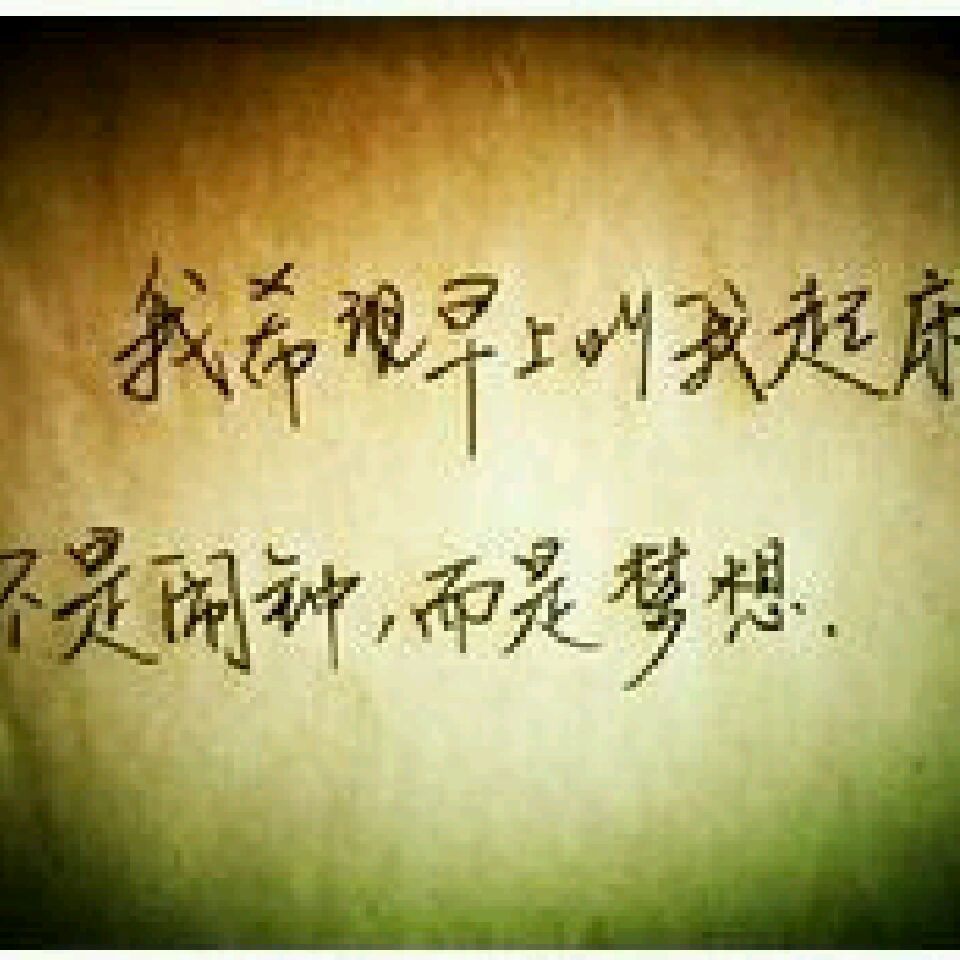 我希现早上叫我起床
不是闹钟,而是梦想.